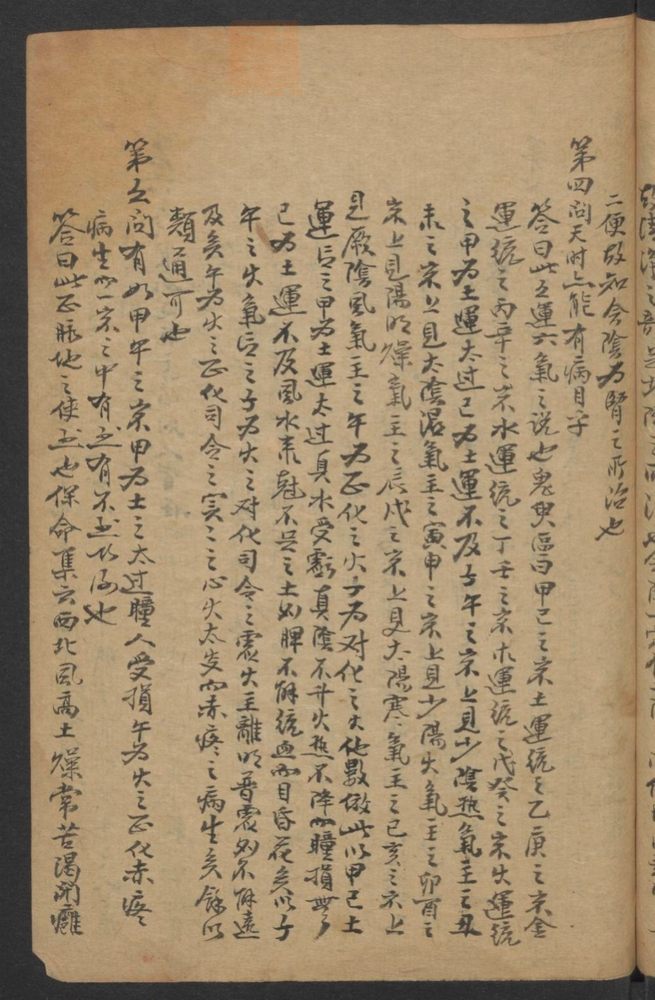 二便故知令陰為腎之所治也
第四問天時亦能有病目乎
答曰此五運六氣之說也鬼臾區曰甲己之岽土運統之乙庚之岽金
運統之丙辛之岽水運統之丁壬之岽木運統之戊癸之岽火運統
之甲為土運太过己為土運不及子午之岽上見少陰熱氣主之丑
未之岽上見太陰濕氣主之寅申之岽上見少陽火氣主之卯酉之
岽上見陽明燥氣主之辰戌之岽上見太陽寒氣主之巳亥之岽上
見厥陰風氣主之午為正化之火子為对化之火他數倣此以甲己土
運言之甲為土運太过真水受虧真陰不升火熱不降而瞳損
己為土運不及風水来尅不足之土如脾不能統血而目昏花矣以子
午之火氣言之子為火之对化司令之震火主離明普震如不能遠
及矣午為火之正化司令之心火太炎而赤疼之病生矣餘以
類通可也
第五問有如甲午之岽甲為土之太过瞳人受損午為火之正化赤疼
病生而一岽之中有有不何也
答曰此正脉地之使也保命集云西北風高土燥常苦渴閉癰